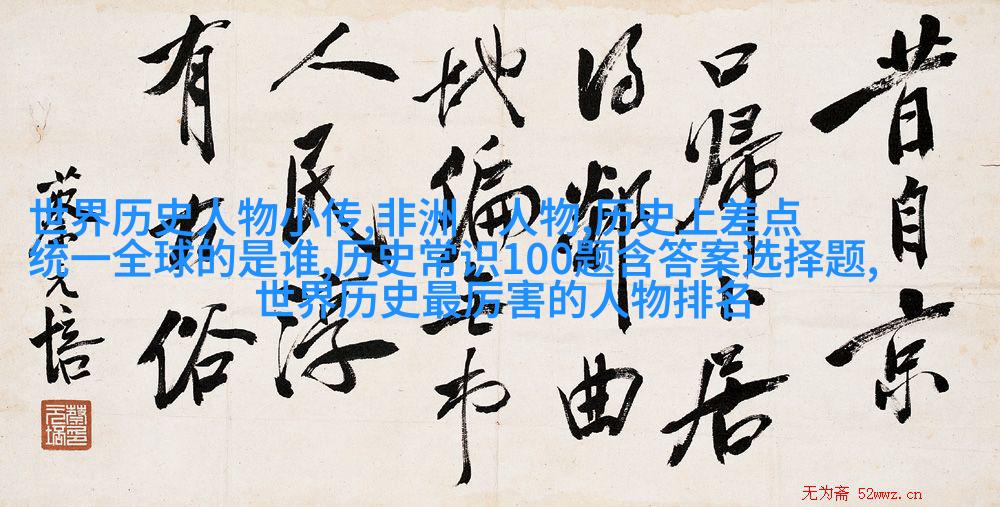 昔自京
口歸卜居
得鄰曲
地偏無市
人民淳
有古俗
蔡元培
世界历史人物小传,非洲、人物,历史上差点
统一全球的是谁,历史常识100题含答案选择题,
世界历史最厉害的人物排名
无为斋 52wwz.cn